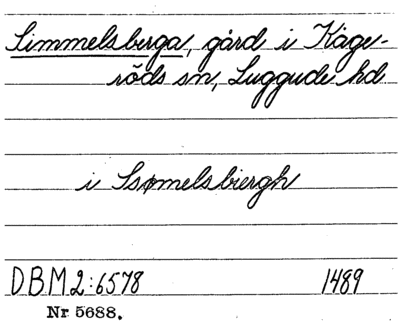 Simmelsberga, gård i Käge-
röds sn, Luggude hd
i Ssømelsbiergh
DBM 2:6578 1489
Nr 5688.